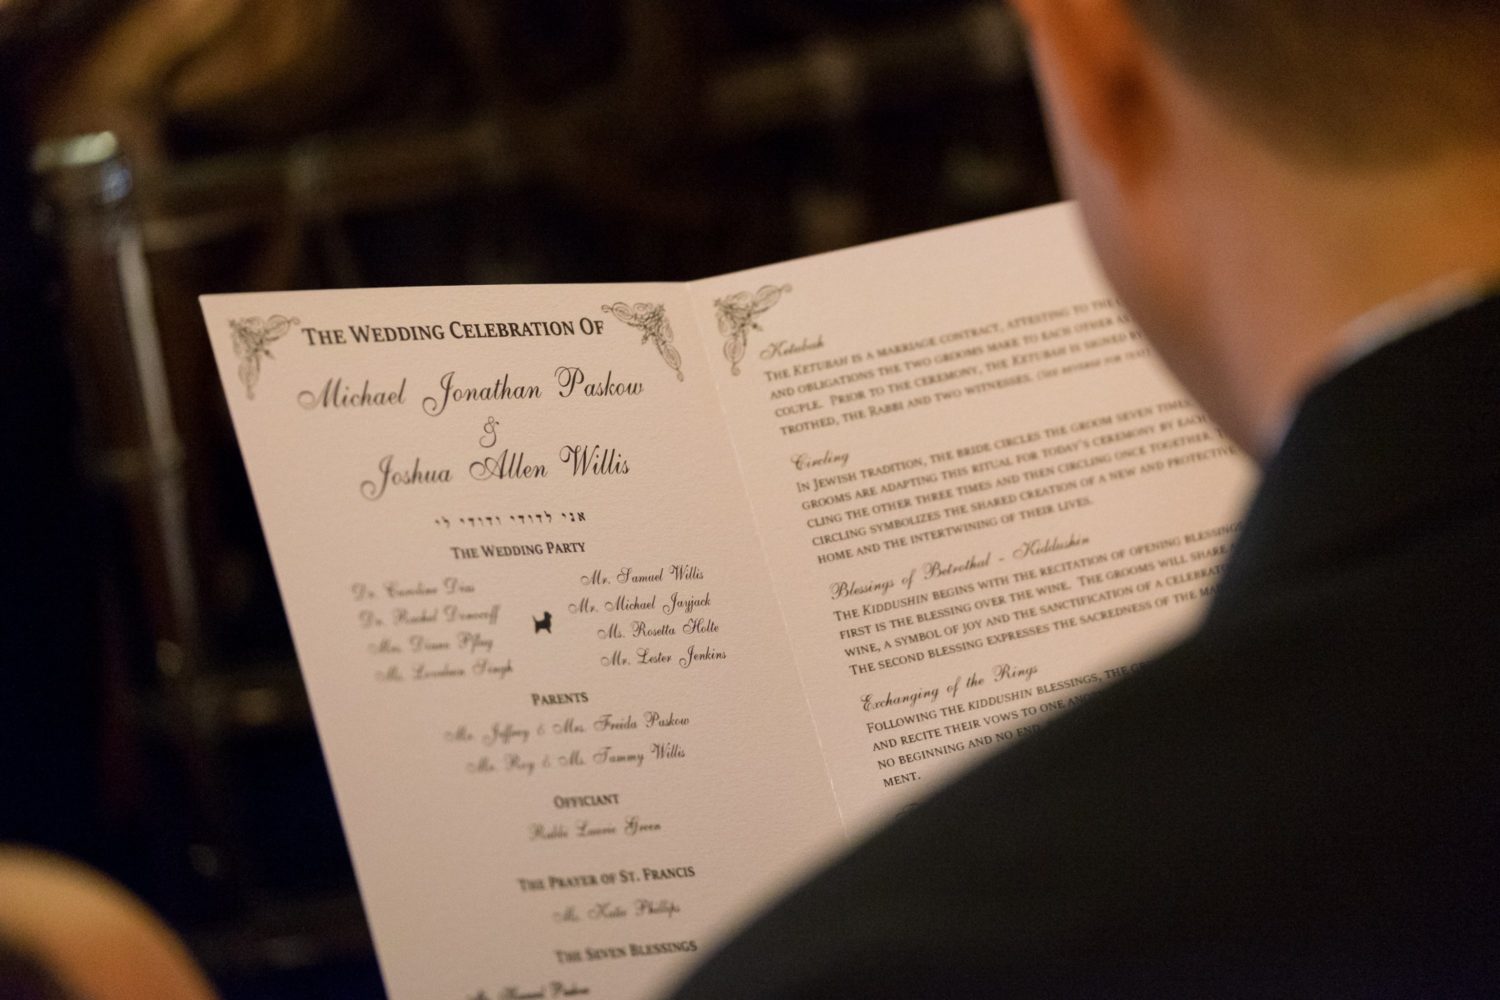 THE WEDDING CELEBRATION OF
Michael Jonathan Paskow
&
Joshua Allen Willis
אני לדודי ודודי לי
THE WEDDING PARTY
Dr. Caroline Dias
Dr. Rachel
Mrs. Diana
Ms. Singh
Mr. Samuel Willis
Mr. Michael Jayjack
Ms. Rosetta Holte
Mr. Lester Jenkins
PARENTS
Mr. Jeffrey & Mrs. Freida Paskow
Mr. Roy & Ms. Tammy Willis
OFFICIANT
Rabbi Laurie Green
THE PRAYER OF ST. FRANCIS
Ms. Katie Phillips
THE SEVEN BLESSINGS
Mr. Paskow
Ketubah
THE KETUBAH IS A MARRIAGE CONTRACT, ATTESTING TO THE
AND OBLIGATIONS THE TWO GROOMS MAKE TO EACH OTHER AS
COUPLE. PRIOR TO THE CEREMONY, THE KETUBAH IS SIGNED BY
TROTHED, THE RABBI AND TWO WITNESSES. (SEE REVERSE FOR TEXT
Circling
IN JEWISH TRADITION, THE BRIDE CIRCLES THE GROOM SEVEN TIMES
GROOMS ARE ADAPTING THIS RITUAL FOR TODAY'S CEREMONY BY EACH
CLING THE OTHER THREE TIMES AND THEN CIRCLING ONCE TOGETHER.
CIRCLING SYMBOLIZES THE SHARED CREATION OF A NEW AND PROTECTIVE
HOME AND THE INTERTWINING OF THEIR LIVES.
Blessings of Betrothal - Kiddushin
THE KIDDUSHIN BEGINS WITH THE RECITATION OF OPENING BLESSINGS
FIRST IS THE BLESSING OVER THE WINE. THE GROOMS WILL SHARE
WINE, A SYMBOL OF JOY AND THE SANCTIFICATION OF A CELEBRATORY
THE SECOND BLESSING EXPRESSES THE SACREDNESS OF THE
Exchanging of the Rings
FOLLOWING THE KIDDUSHIN BLESSINGS, THE
AND RECITE THEIR VOWS TO ONE
NO BEGINNING AND NO END
MENT.